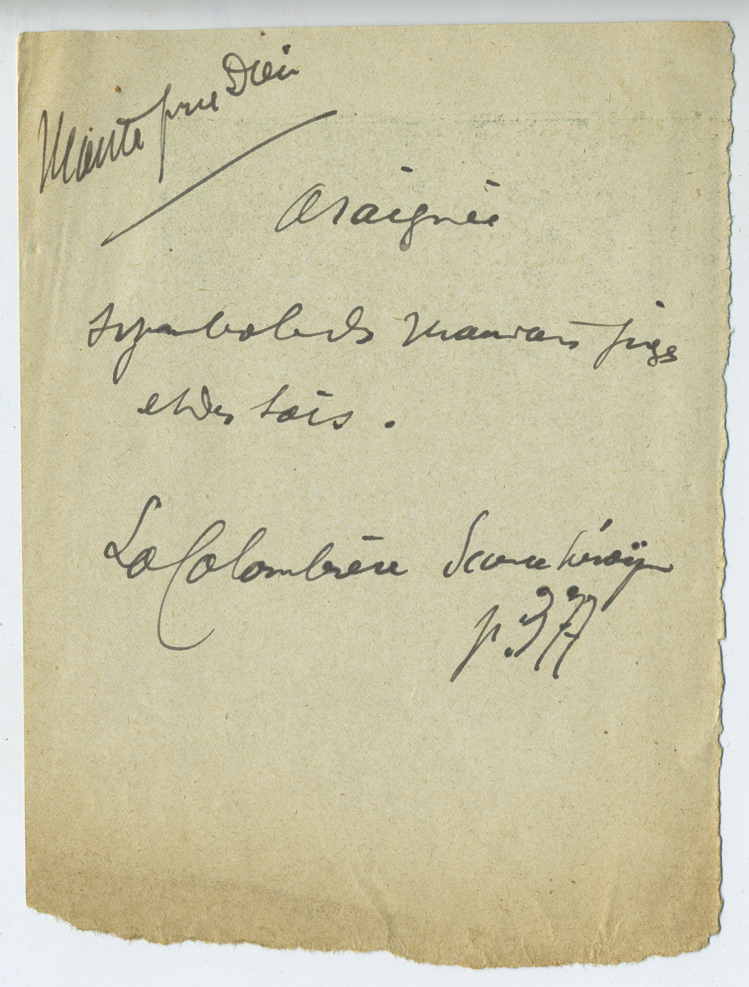 Mante prie Dieu
Araignée
Symbole des mauvais juges
et des lois.
La Colombière Science héroïque
p. 377